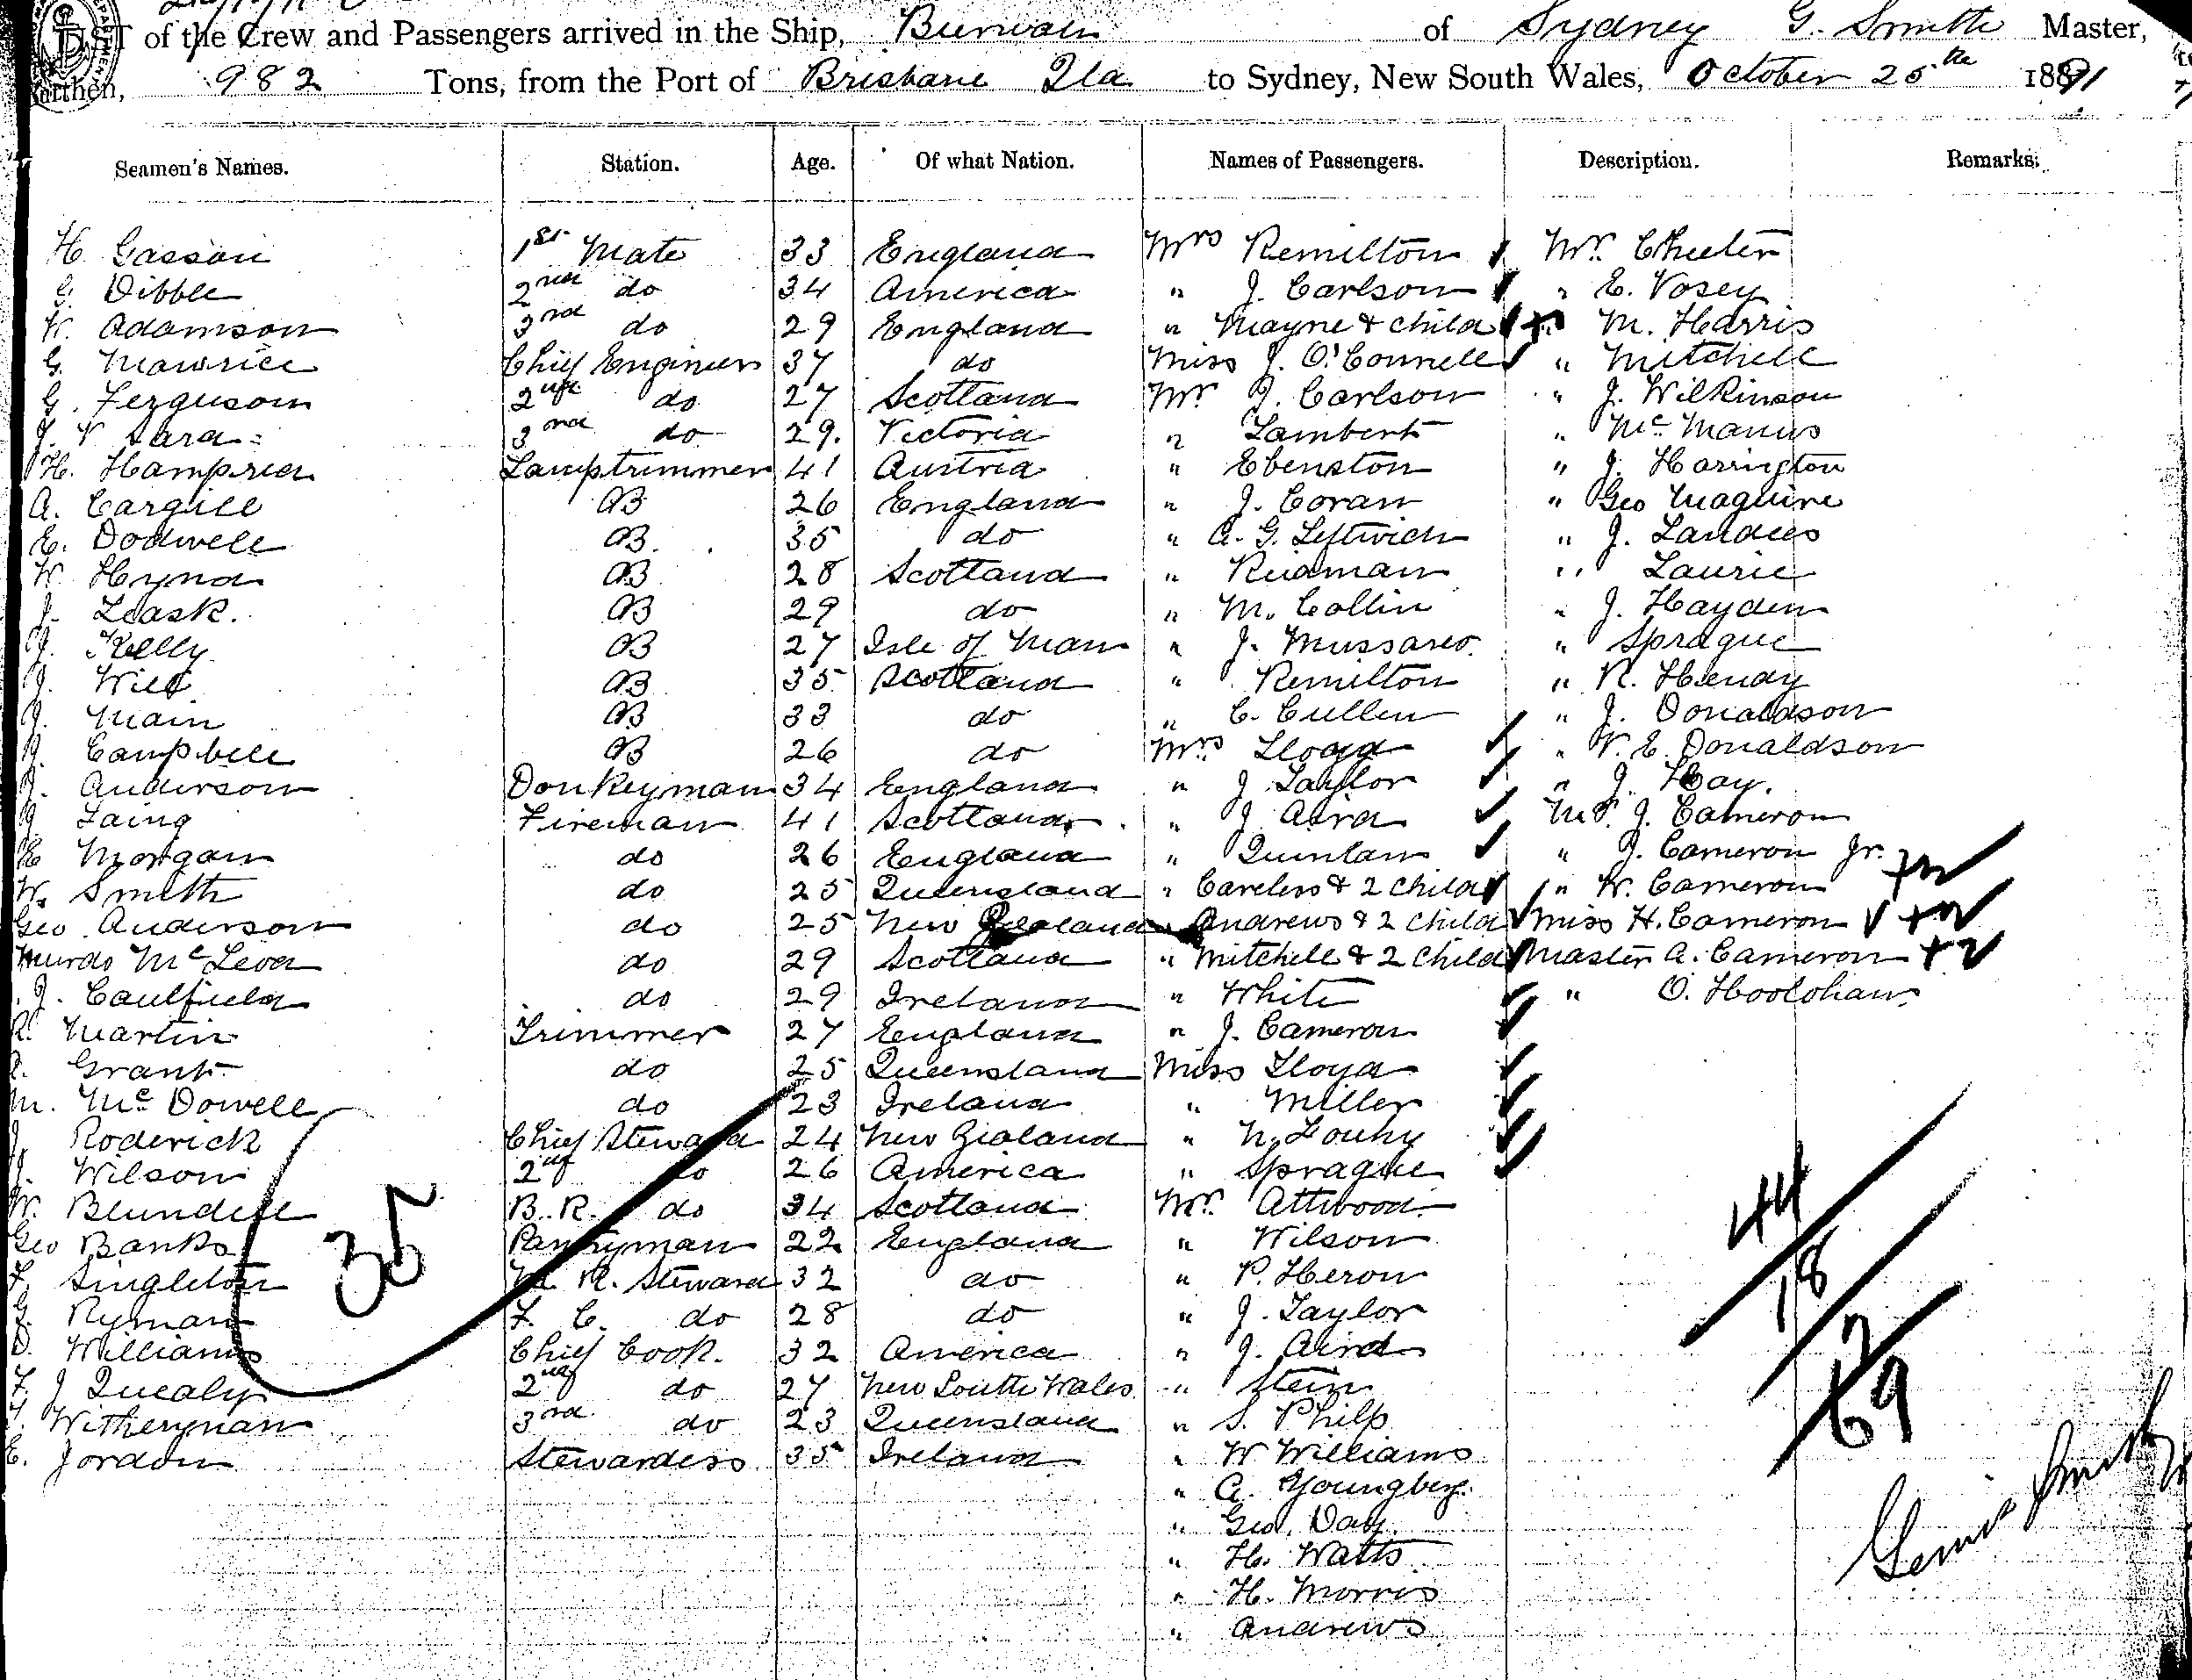 of the Crew and Passengers arrived in the Ship, Burwah of Sydney G. Smith Master,
Burthen, 982 Tons, from the Port of Brisbane Qld to Sydney, New South Wales, October 25th 1891
Seamen's Names. Station. Age. Of what Nation. Names of Passengers. Description. Remarks.
H. Gasson 1st Mate 33 England Mrs Remilton Mr. Cheeter
G. Dibble 2nd do 34 America " J. Carlson " E. Vosey
W. Adamson 3rd do 29 England " Mayne & child " M. Harris
G. Mawrice Chief Engineer 37 do Miss J. O'Connell " Mitchell
G. Ferguson 2nd do 27 Scotland Mr J. Carlson " J. Wilkinson
J. V Sara 3rd do 29. Victoria " Lambert " McManus
H. Hampria Lamptrimmer 41 Austria " Ebenston " J. Harrington
A. Cargill AB 26 England " J. Coran " Geo Maguire
E. Dodwell AB. 35 do " A. G. Leftwich " J. Landies
W. Heyna AB 28 Scotland " Ridman " Laurie
J. Leask. AB 29 do " M. Collin " J. Hayden
J. Kelly AB 27 Isle of Man " J. Mussared " Sprague
J. Will AB 35 Scotland " Remilton " R. Hendy
J. Main AB 33 do " C. Cullen " J. Donaldson
J. Campbell AB 26 do Mrs Lloyd " W. E. Donaldson
J. Anderson Donkeyman 34 England " J Taylor " J. Hay.
J. Laing Fireman 41 Scotland " J Aird Mr. J. Cameron
E Morgan do 26 England " Quinlan " J. Cameron Jr.
W. Smith do 25 Queensland " Careless & 2 child " W. Cameron
Geo Anderson do 25 New Zealand " Andrews & 2 child Miss H. Cameron
Murdo McLeod do 29 Scotland " Mitchell & 2 child Master A. Cameron
J. Caulfield do 29 Ireland " White " O. Hoolohan
R. Martin Trimmer 27 England " J. Cameron
Grant do 25 Queensland Miss Lloyd
M. McDowell do 23 Ireland " Miller
J. Roderick Chief Steward 24 New Zealand " N. Louhy
J. Wilson 2nd do 26 America " Sprague
W. Blundell B. R. do 34 Scotland Mr. Attwood
Geo Banks Pantryman 22 England " Wilson
F. Singleton R. Steward 32 do " P. Heron
G. Ryman F. C. do 28 do " J. Taylor
D. Williams Chief Cook. 32 America " J. Aird
F. J Quealy 2nd do 27 New South Wales " Stein
Witheryman 3rd do 23 Queensland " S. Philp
E. Jordon Stewardess 35 Ireland " W Williams
" A. Youngbery.
" Geo. Day.
" H. Watts
" H. Morris
" Andrews
35
44
18
7
69